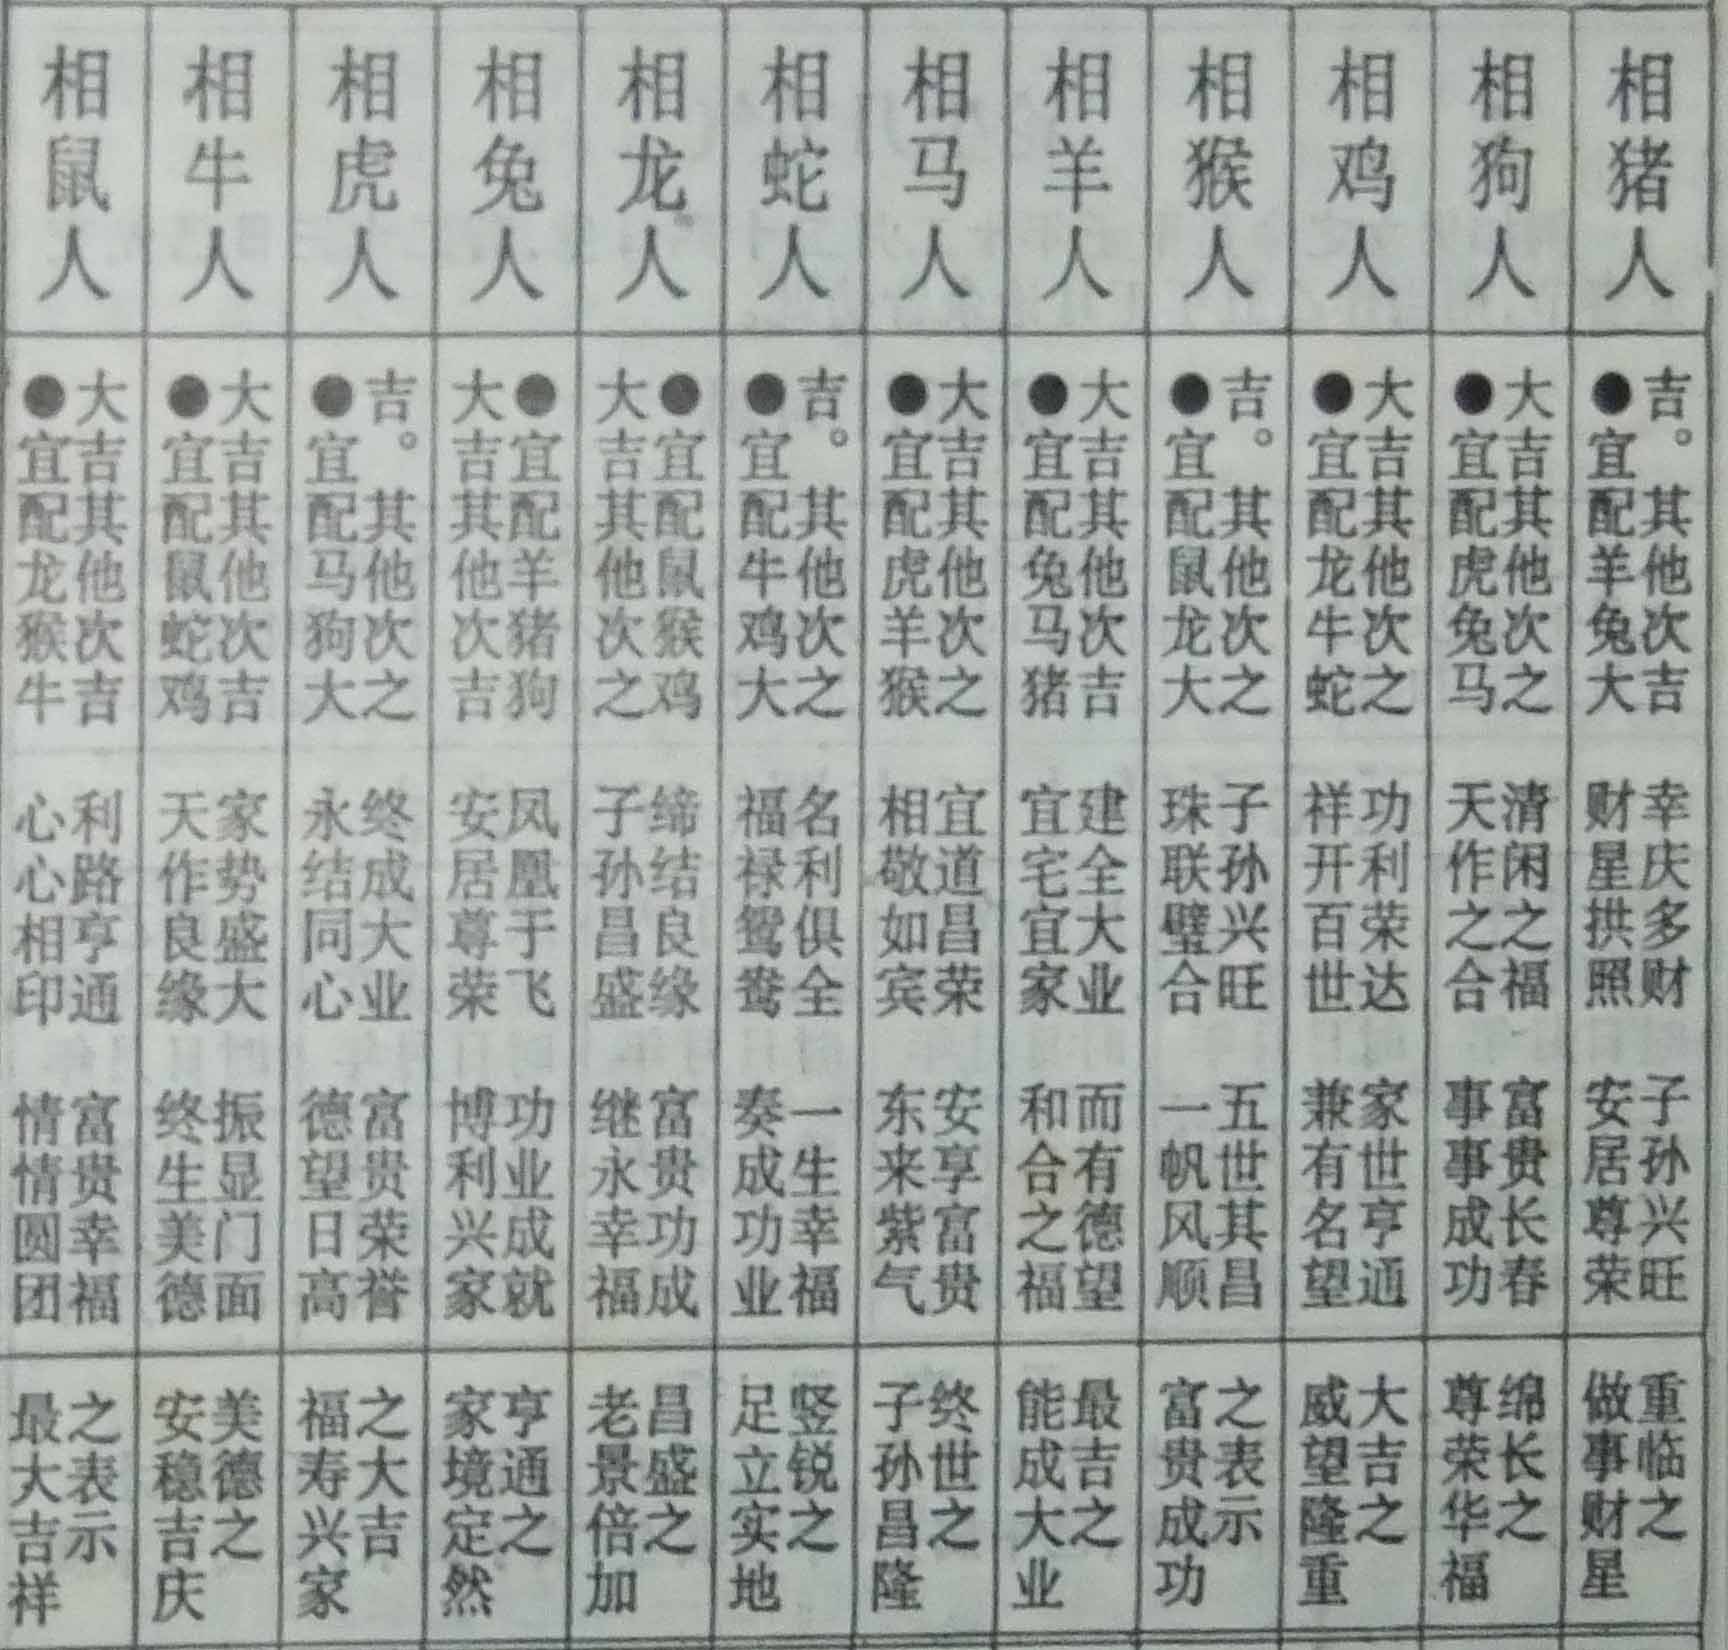 相鼠人
●宜配龙猴牛
大吉其他次吉
心心相印
利路亨通
情情圆团
富贵幸福
最大吉祥
之表示
相牛人
●宜配鼠蛇鸡
大吉其他次吉
天作良缘
家势盛大
终生美德
振显门面
安稳吉庆
美德之
相虎人
●宜配马狗大
吉。其他次之
永结同心
终成大业
德望日高
富贵荣誉
福寿兴家
之大吉
相兔人
●宜配羊猪狗
大吉其他次吉
安居尊荣
凤凰于飞
博利兴家
功业成就
家境定然
亨通之
相龙人
●宜配鼠猴鸡
大吉其他次之
子孙昌盛
缔结良缘
继永幸福
富贵功成
老景倍加
昌盛之
相蛇人
●宜配牛鸡大
吉。其他次之
福禄鸳鸯
名利俱全
奏成功业
一生幸福
足立实地
竖锐之
相马人
●宜配虎羊猴
大吉其他次之
相敬如宾
宜道昌荣
东来紫气
安享富贵
子孙昌隆
终世之
相羊人
●宜配兔马猪
大吉其他次吉
宜宅宜家
建全大业
和合之福
而有德望
能成大业
最吉之
相猴人
●宜配鼠龙大
吉。其他次之
珠联璧合
子孙兴旺
一帆风顺
五世其昌
富贵成功
之表示
相鸡人
●宜配龙牛蛇
大吉其他次之
祥开百世
功利荣达
兼有名望
家世亨通
威望隆重
大吉之
相狗人
●宜配虎兔马
大吉其他次之
天作之合
清闲之福
事事成功
富贵长春
尊荣华福
绵长之
相猪人
●宜配羊兔大
吉。其他次吉
财星拱照
幸庆多财
安居尊荣
子孙兴旺
做事财星
重临之